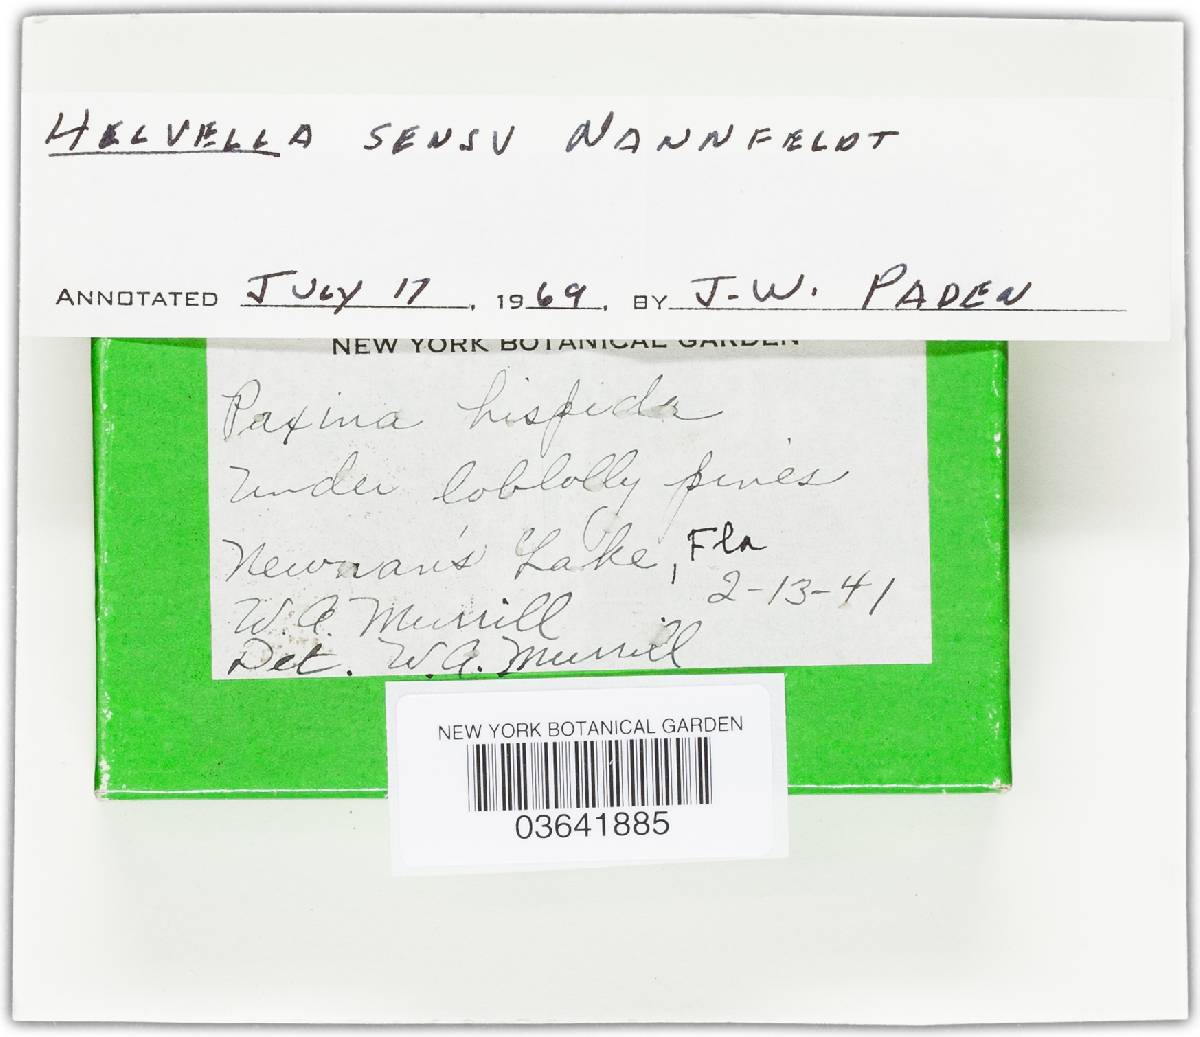 HELVELLA SENSU NANNFELDT
ANNOTATED JULY 17, 1969, BY J.W. PADEN
NEW YORK BOTANICAL GARDEN
Paxina hispida
Under loblolly pines
Newnan's Lake, Fla
2-13-41
W.A. Murrill
Det. W.A. Murrill
NEW YORK BOTANICAL GARDEN
03641885